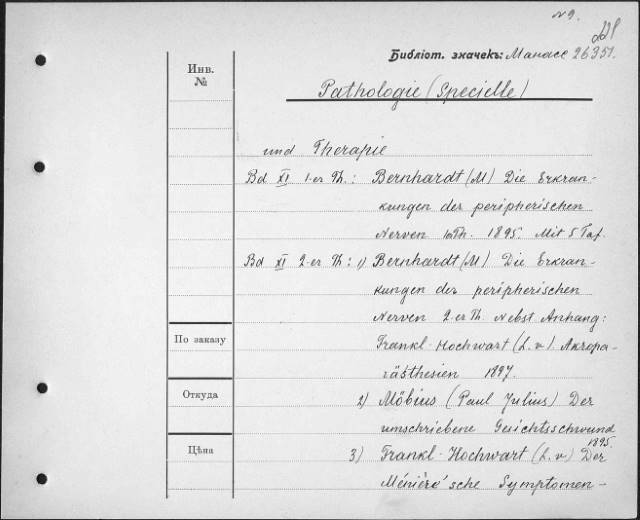 N 9.
Библіот. значекъ: Манасе 26351.
Инв.
№
Pathologie (specielle)
und Therapie
Bd XI 1-er Th.: Bernhardt (M) Die Erkran-
kungen der peripherischen
Nerven Th. 1895. Mit 5 Taf.
Bd XI 2-er Th: 1) Bernhardt (M) Die Erkran-
kungen der peripherischen
Nerven 2-er Th. Nebst Anhang:
По заказу
Frankl-Hochwart (L. v.). Akropa-
rästhesien 1897.
Откуда
2) Möbius (Paul Julius) Der
umschriebene Gesichtsschwund
1895.
Цѣна
3) Frankl-Hochwart (L. v.) Der
Ménière'sche Symptomen-